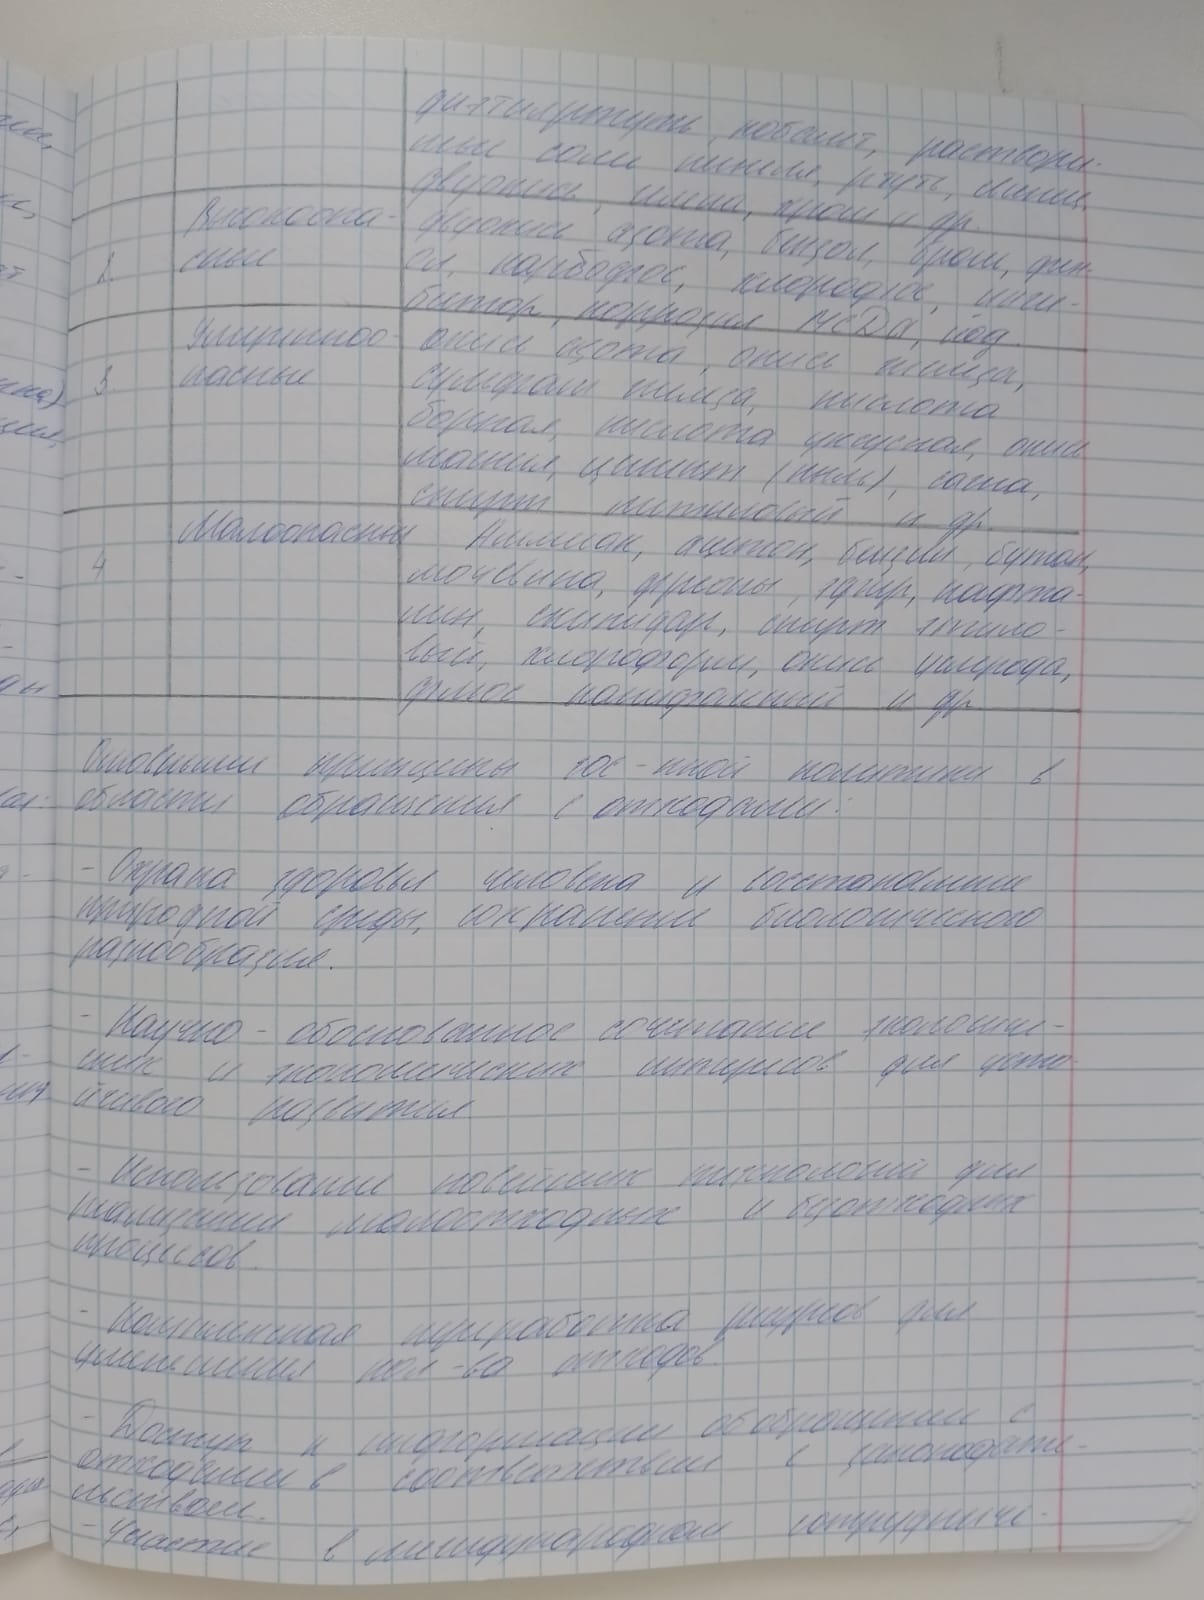 диэтилртуть, кобальт, раствори-
мые соли никеля, ртуть, свинец,
двуокись, цинка, хром и др.
2. Высокоопа-
сные
двуокись азота, бензол, бром, фен-
ол, карбофос, хлорофос, инги-
битор, коррозия МСДА, йод.
3 Умереноо-
пасные
окись азота, окись железа,
сульфат железа, кислота
борная, кислота уксусная, окись
магния, цемент (пыль), сажа,
спирт метиловый и др.
4 Малоопасны
Аммиак, ацетон, бензин, бутан,
мочевина, фреоны, эфир, нафта-
лин, скипидар, спирт этило-
вый, хлороформ, окись углерода,
флюс канифольный и др.
Основными принципы гос-нной политики в
области обращения с отходами:
- Охрана здоровья человека и восстановление
природной среды, сохранение биологического
разнообразия.
- Научно - обоснованное сочетание экологиче-
ских и экономических интересов для усто-
йчивого развития
- Использование новейших технологий для
реализации малоотходных и безотходных
процессов.
- Комплексная переработка ресурсов для
уменьшения кол-ва отходов.
- Доступ к информации об обращении с
отходами в соответствии с законодате-
льством.
- Участие в международном сотрудниче-